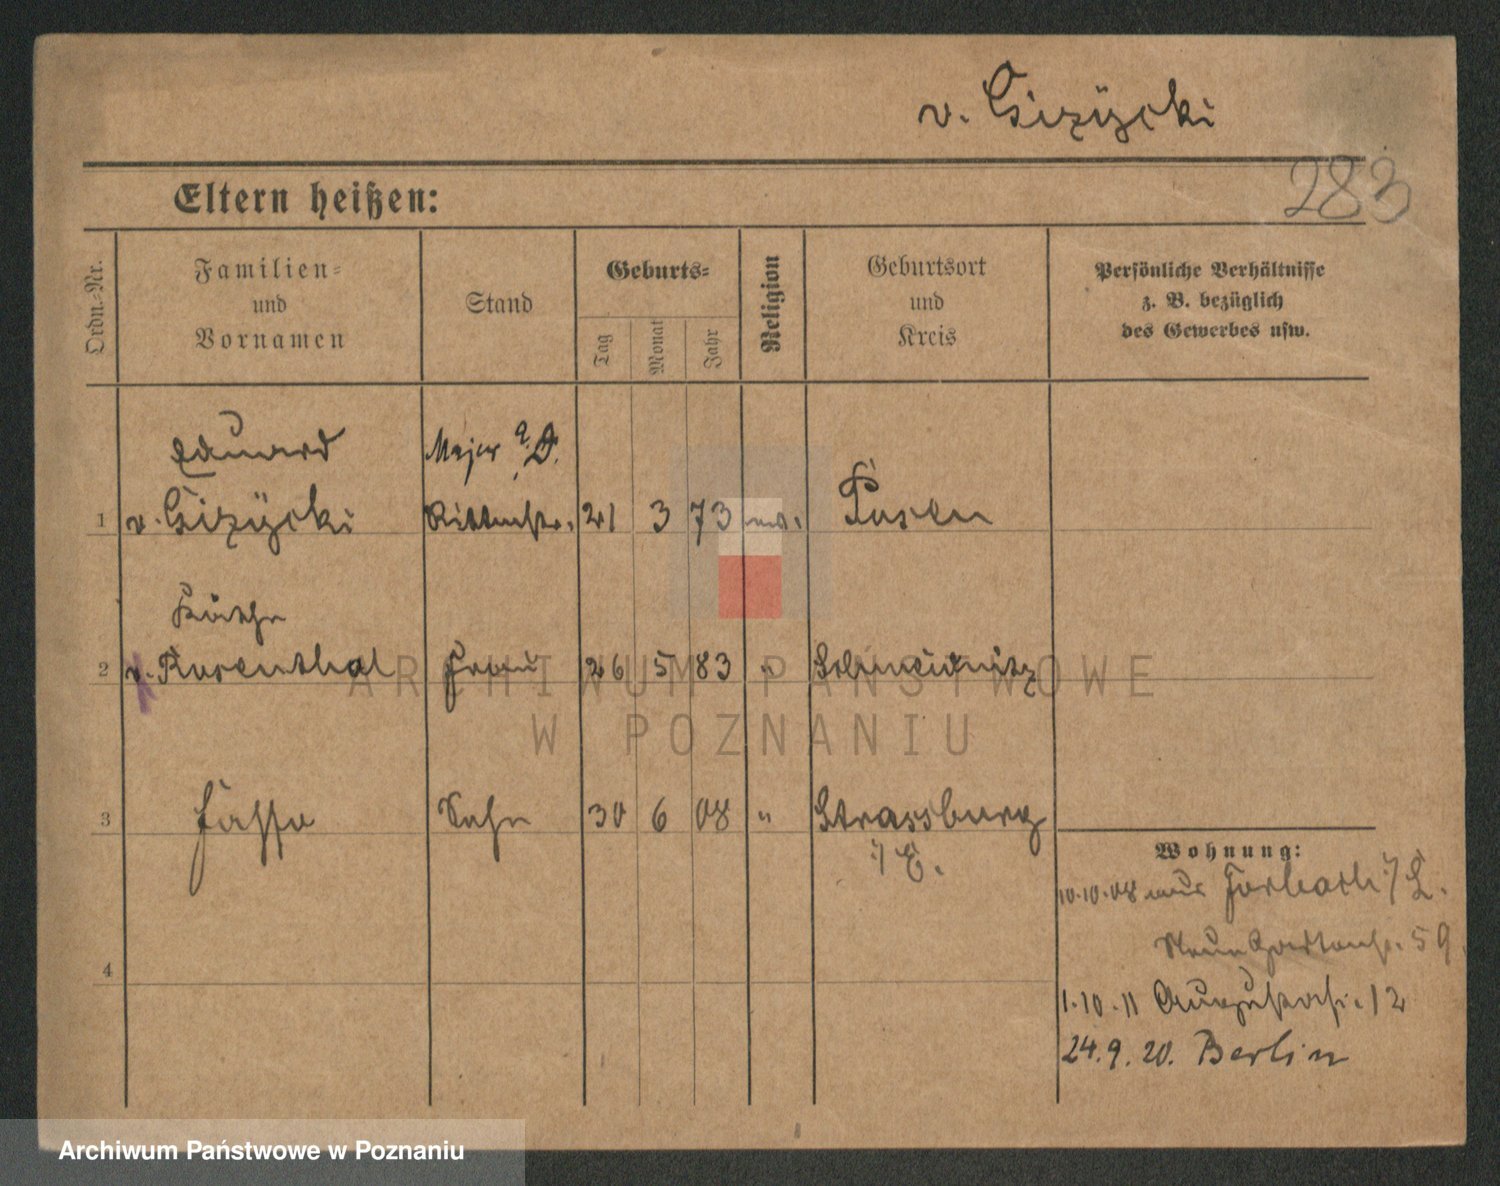 v. Gizÿcki
283
Eltern heißen:
Ordn.-Nr.
Familien-
und
Vornamen
Stand
Geburts-
Tag
Monat
Jahr
Religion
Geburtsort
und
Kreis
Persönliche Verhältnisse
z. B. bezüglich
des Gewerbes usw.
Eduard
Major a. D.
1 v. Gizÿcki Rittmstr. 21 3 73 ev. Posen
Käthe
2 v. Rosenthal Frau 26 5 83 " Schweidnitz
3 Hasso Sohn 30 6 08 " Strassburg
i/E.
Wohnung:
10.10.08 aus Forbach i/L.
Neue Gartenstr. 59
4
1.10.11 Augustastr. 12
24.9.20. Berlin
ARCHIWUM PAŃSTWOWE
W POZNANIU
Archiwum Państwowe w Poznaniu